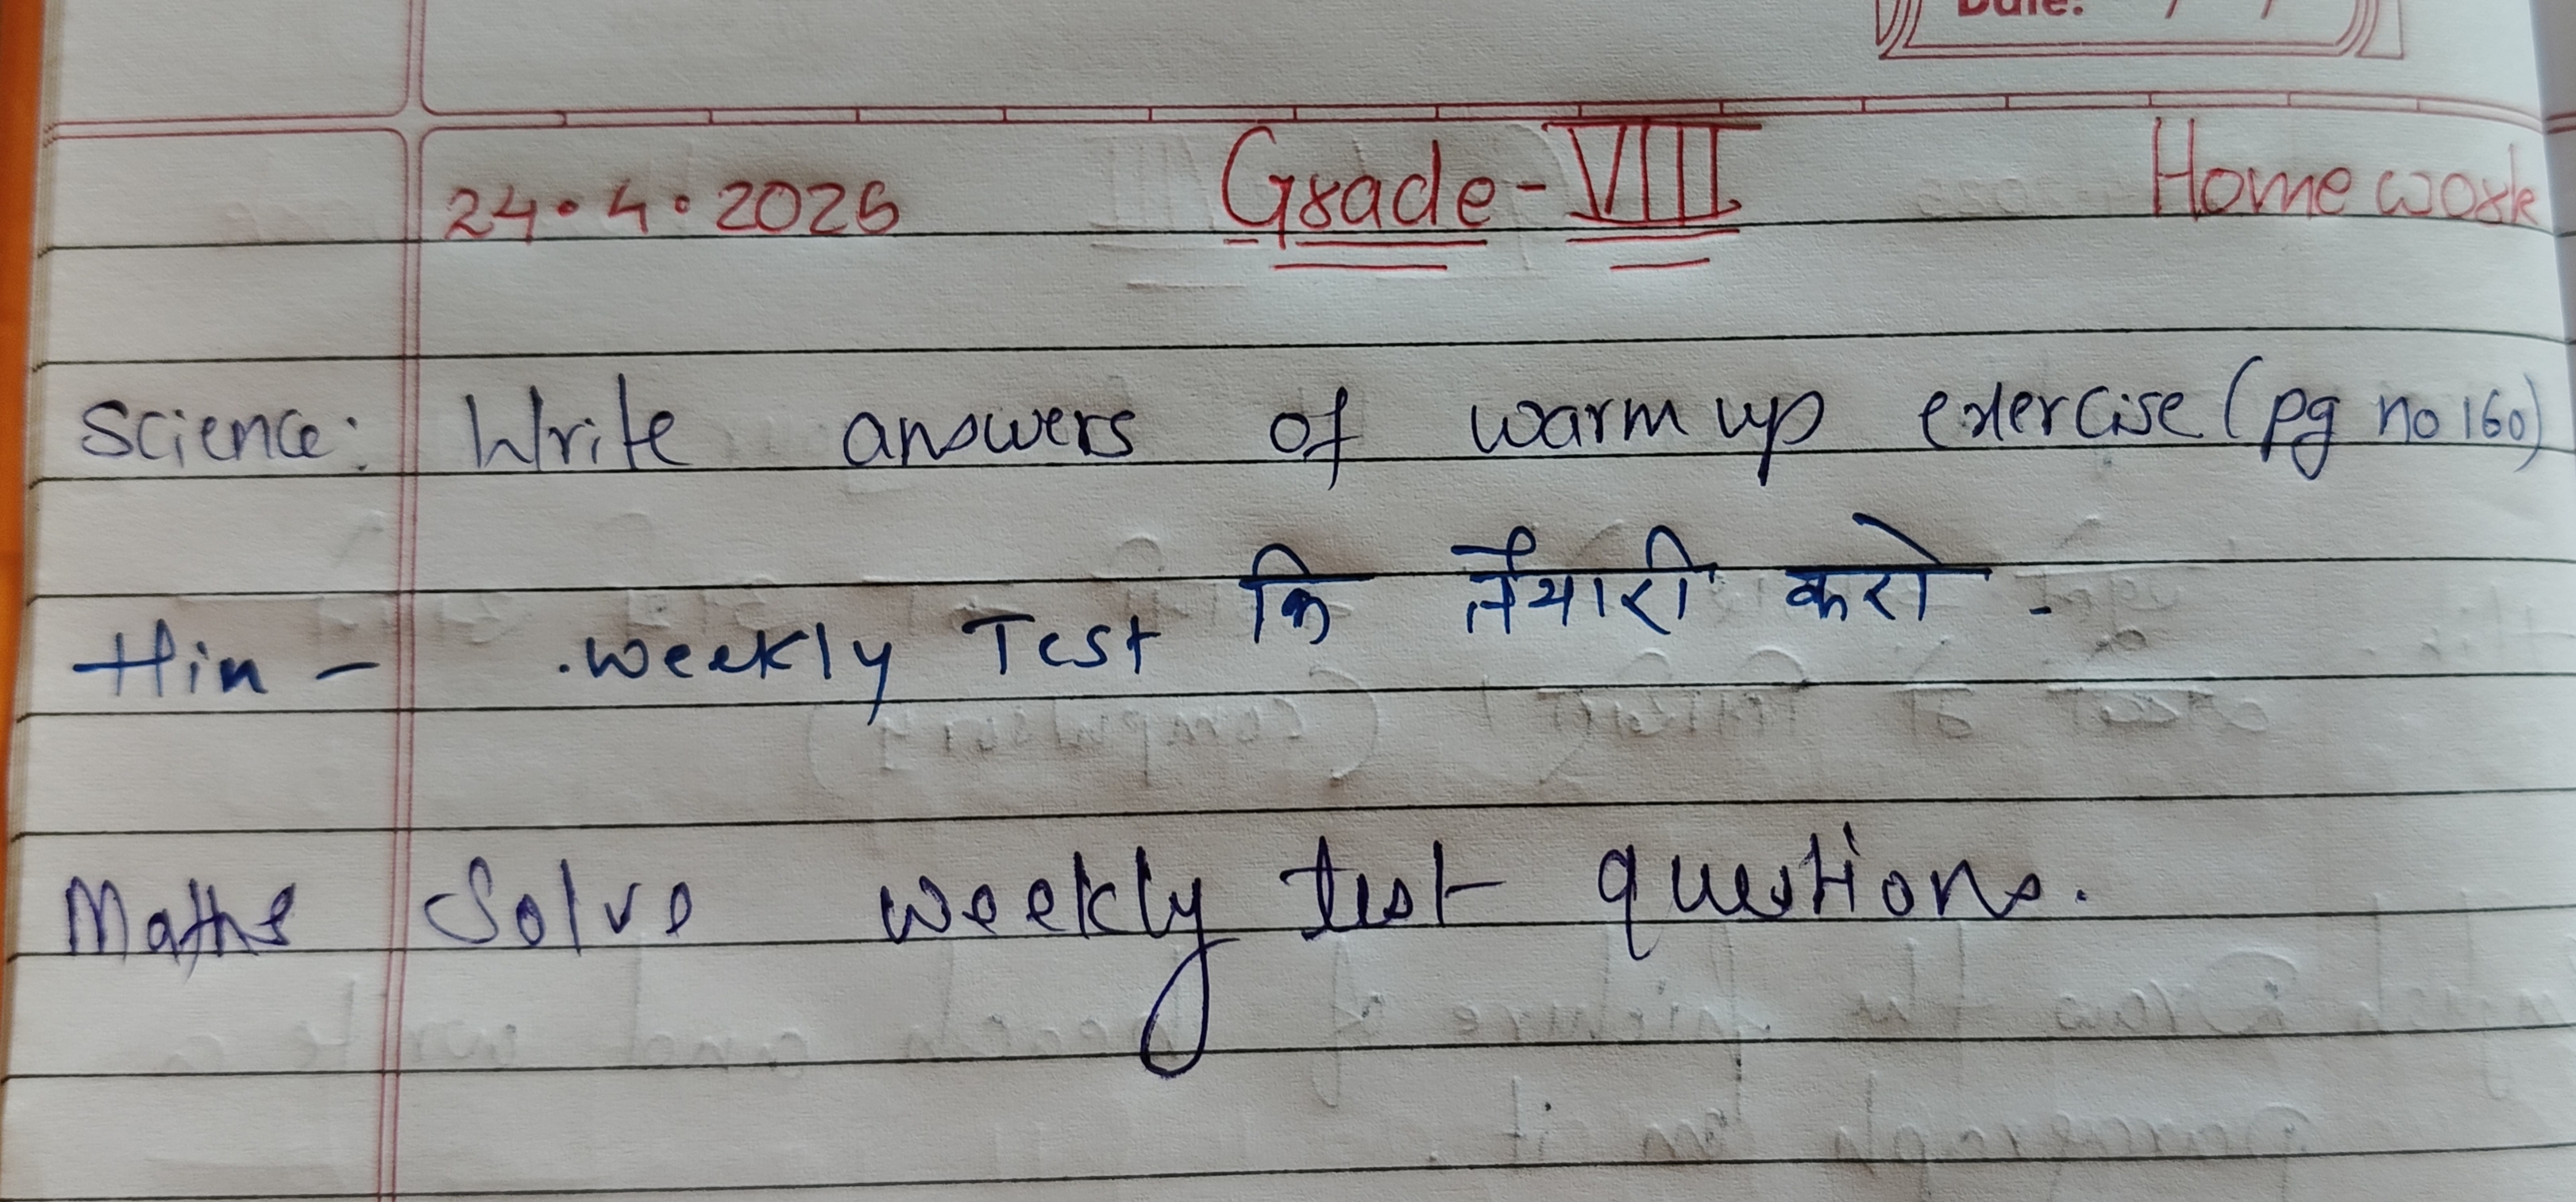 Date: / /
24.4.2026 Grade-VIII Home work
Science: Write answers of warm up exercise (pg no 160)
Hin - .weekly Test कि तैयारी करो -
Maths Solve weekly test questions.